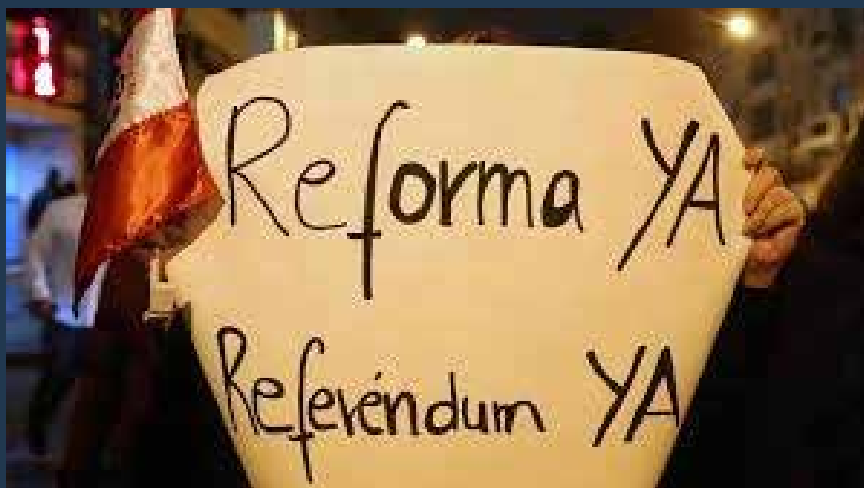 Reforma YA
Referéndum YA